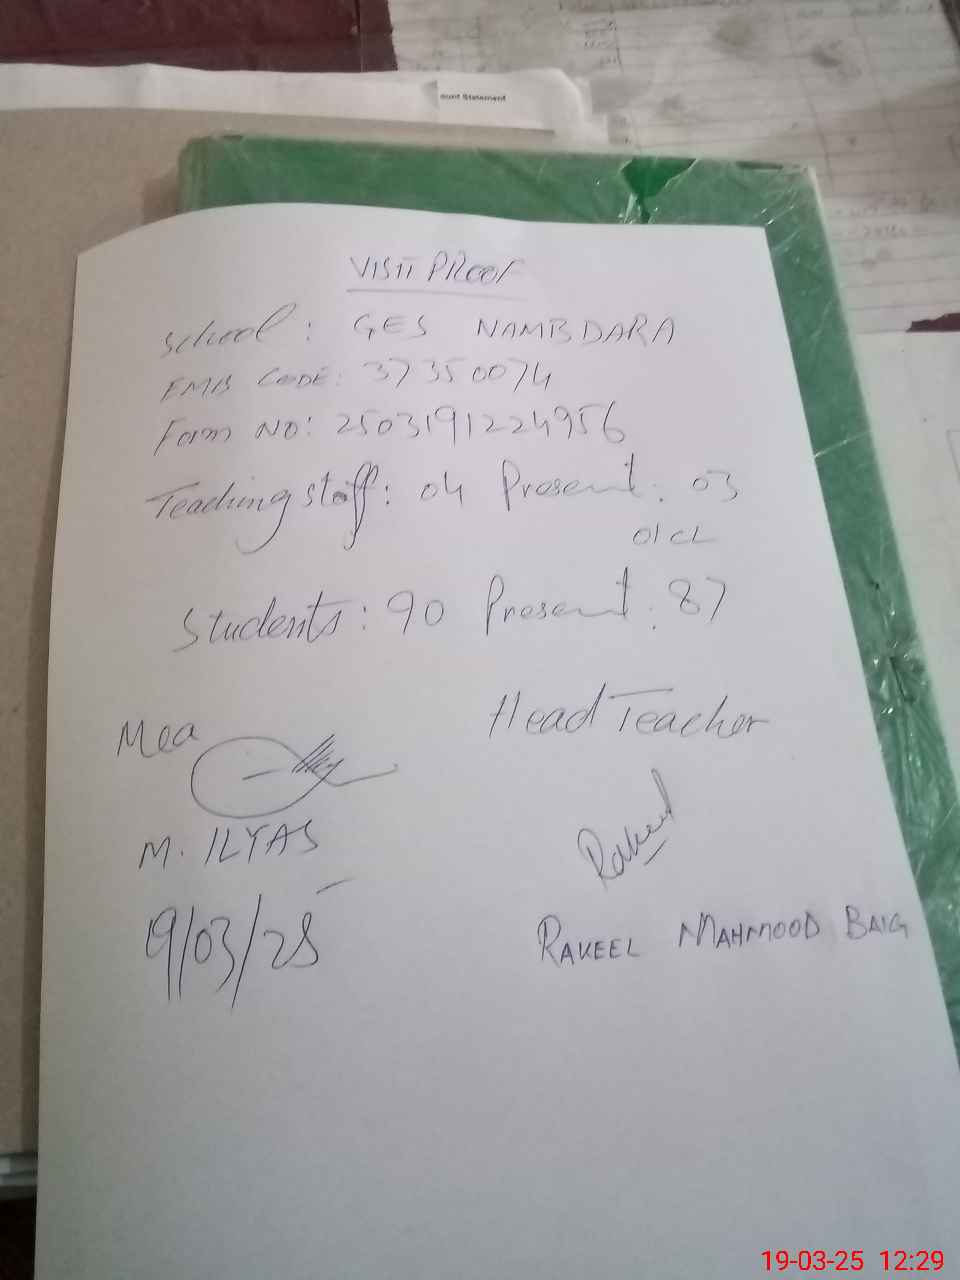 ount Statement
VISIT PROOF
School: GES NAMBDARA
EMIS CODE: 37350074
Form NO: 2503191224956
Teaching staff: 04 Present: 03
01 CL
Students: 90 Present: 87
Mea
Head Teacher
M. ILYAS
Rakeel
19/03/25
RAKEEL MAHMOOD BAIG
19-03-25 12:29